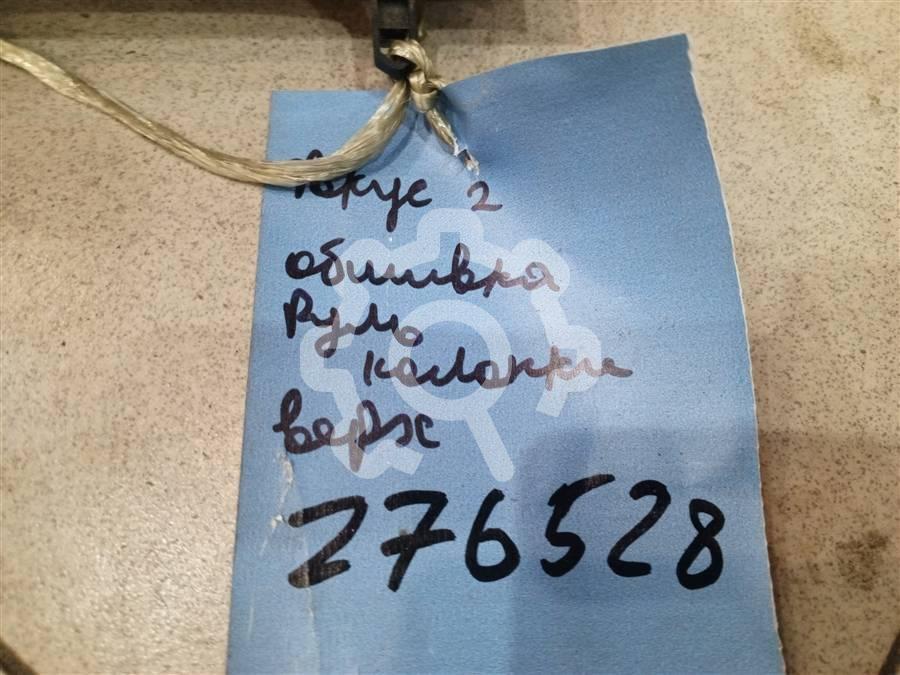 Фокус 2
обшивка
Руль
колонки
верх
276528